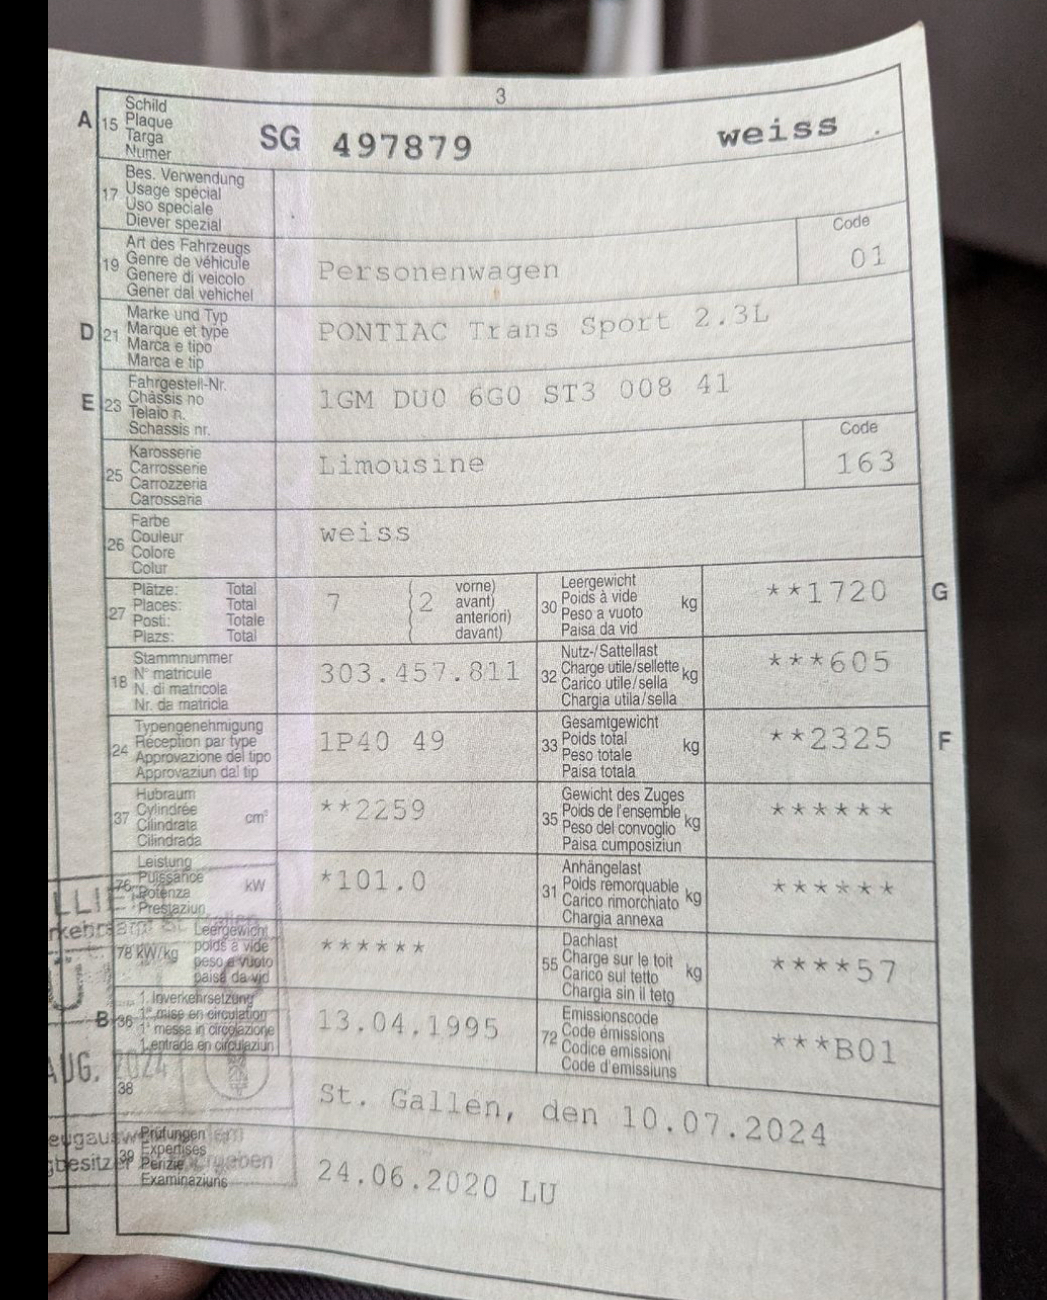 3
A 15 Schild
Plaque
Targa
Numer
SG 497879 weiss
17 Bes. Verwendung
Usage spécial
Uso speciale
Diever spezial
19 Art des Fahrzeugs
Genre de véhicule
Genere di veicolo
Gener dal vehichel
Personenwagen
Code
01
D 21 Marke und Typ
Marque et type
Marca e tipo
Marca e tip
PONTIAC Trans Sport 2.3L
E 23 Fahrgestell-Nr.
Châssis no
Telaio n.
Schassis nr.
1GM DU0 6G0 ST3 008 41
25 Karosserie
Carrosserie
Carrozzeria
Carossaria
Limousine
Code
163
26 Farbe
Couleur
Colore
Colur
weiss
27 Plätze: Total
Places: Total
Posti: Totale
Plazs: Total
7 (2 vorne)
avant)
anteriori)
davant)
30 Leergewicht
Poids à vide
Peso a vuoto
Paisa da vid
kg
**1720 G
18 Stammnummer
N° matricule
N. di matricola
Nr. da matricla
303.457.811
32 Nutz-/Sattellast
Charge utile/sellette
Carico utile/sella
Chargia utila/sella
kg
***605
24 Typengenehmigung
Réception par type
Approvazione del tipo
Approvaziun dal tip
1P40 49
33 Gesamtgewicht
Poids total
Peso totale
Paisa totala
kg
**2325 F
37 Hubraum
Cylindrée
Cilindrata
Cilindrada
cm³
**2259
35 Gewicht des Zuges
Poids de l'ensemble
Peso del convoglio
Paisa cumposiziun
kg
******
76 Leistung
Puissance
Potenza
Prestaziun
kW
*101.0
31 Anhängelast
Poids remorquable
Carico rimorchiato
Chargia annexa
kg
******
78 kW/kg Leergewicht
poids à vide
peso a vuoto
paisa da vid
******
55 Dachlast
Charge sur le toit
Carico sul tetto
Chargia sin il tetg
kg
****57
B 36 1. Inverkehrsetzung
1re mise en circulation
1a messa in circolazione
1. entrada en circulaziun
13.04.1995
72 Emissionscode
Code émissions
Codice emissioni
Code d'emissiuns
***B01
AUG. 2024
38
St. Gallen, den 10.07.2024
39 Prüfungen
Expertises
Perizie
Examinaziuns
24.06.2020 LU